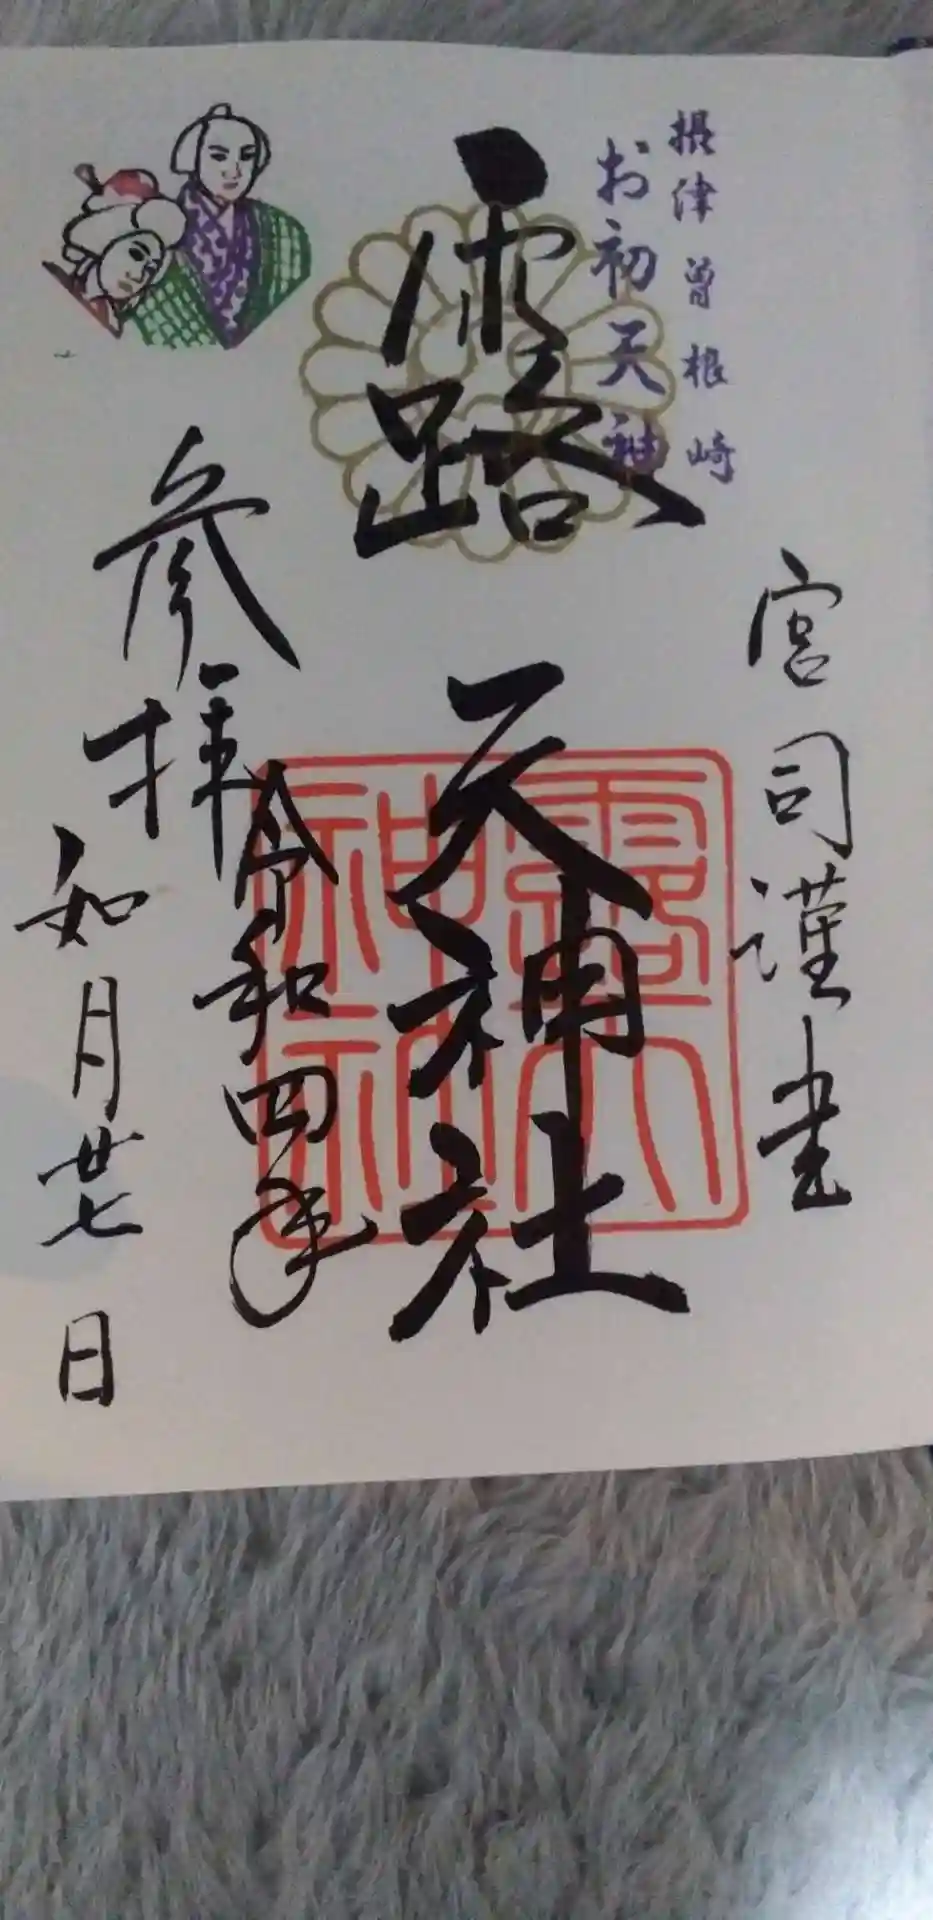 摂津曽根崎
お初天神
宮司謹書
露天神社
露天
神社
参拝
令和四年
如月廿七日